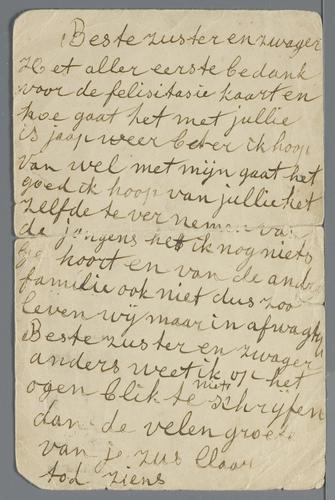 Beste zuster en zwager
Het aller eerste bedank
voor de felisitasie kaart en
hoe gaat het met jullie
is jaap weer beter ik hoop
van wel met mijn gaat het
goed ik hoop van jullie het
zelfde te ver nemen van
de jongens heb ik nog niets
ge hoort en van de andre
familie ook niet dus zoo
leven wij maar in afwagting
Beste zuster en zwager
anders weet ik op het
ogen blik niets te schrijfen
dan de velen groet
van je zus Claar
tod ziens